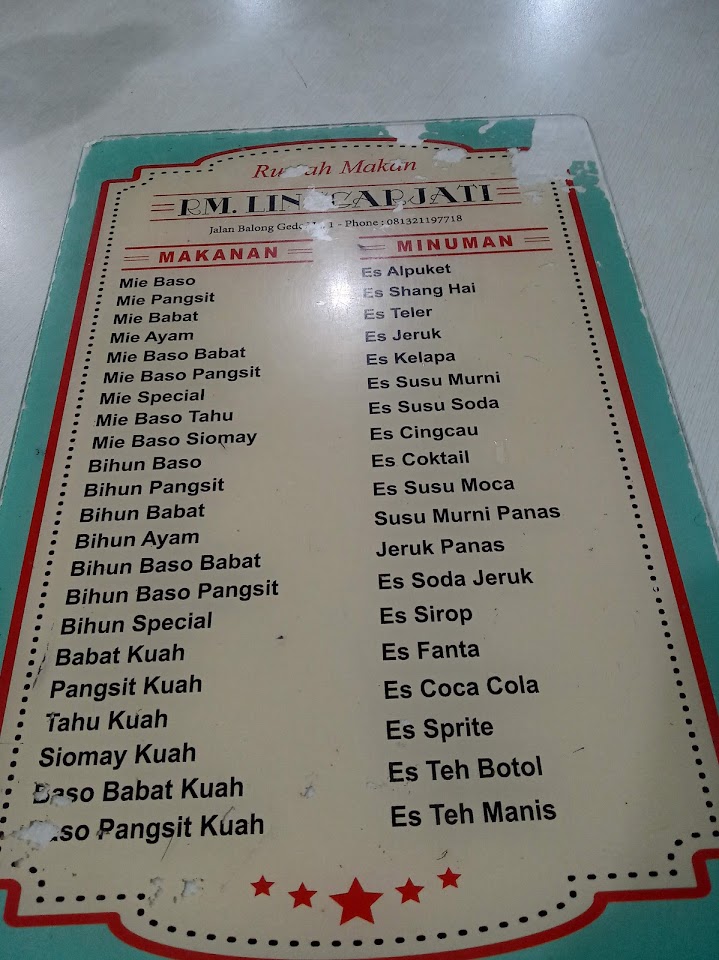 Rumah Makan
RM. LINGGARJATI
Jalan Balong Gede 1 - Phone : 081321197718
MAKANAN
Mie Baso
Mie Pangsit
Mie Babat
Mie Ayam
Mie Baso Babat
Mie Baso Pangsit
Mie Special
Mie Baso Tahu
Mie Baso Siomay
Bihun Baso
Bihun Pangsit
Bihun Babat
Bihun Ayam
Bihun Baso Babat
Bihun Baso Pangsit
Bihun Special
Babat Kuah
Pangsit Kuah
Tahu Kuah
Siomay Kuah
Baso Babat Kuah
Baso Pangsit Kuah
MINUMAN
Es Alpuket
Es Shang Hai
Es Teler
Es Jeruk
Es Kelapa
Es Susu Murni
Es Susu Soda
Es Cingcau
Es Coktail
Es Susu Moca
Susu Murni Panas
Jeruk Panas
Es Soda Jeruk
Es Sirop
Es Fanta
Es Coca Cola
Es Sprite
Es Teh Botol
Es Teh Manis